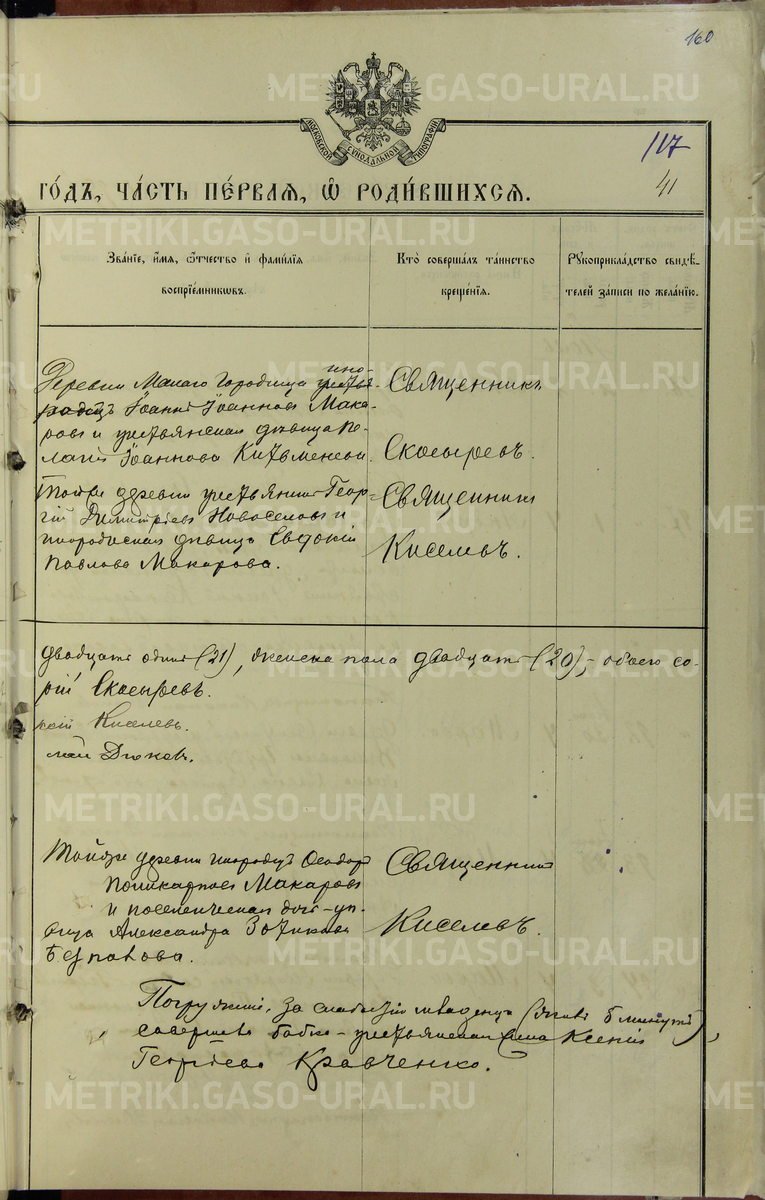 160
METRIKI.GASO-URAL.RU
МОСКОВСКОЙ СѴНОДАЛЬНОЙ ТИПОГРАФІИ
117
41
ГО́ДЪ, ЧА́СТЬ ПЕ́РВАЯ, Ѽ РОДИ́ВШИХСЯ.
Зва́нїе, и҆́мя, ѻ҆́тчество и҆ фами́лїя
воспрїе́мниковъ.
Кто̀ соверша́лъ та́инство
креще́нїя.
Рꙋкоприкла́дство свидѣ́-
телей за́писи по жела́нїю.
Деревни Малаго Городища ино-
родецъ Іоаннъ Іоанновъ Мака-
ровъ и крестьянская дѣвица Пе-
лагія Іоаннова
Священникъ
Скосыревъ.
Тойже деревни крестьянинъ Геор-
гій Димитріевъ Новоселовъ и
инородческая дѣвица Евдокія
Павлова Макарова.
Священникъ
Киселевъ.
двадцать одинъ (21), женска пола двадцать (20), обоего со-
рій Скосыревъ.
кій Киселевъ.
лай Дюковъ.
METRIKI.GASO-URAL.RU
Тойже деревни инородецъ Ѳеодоръ
Поликарповъ Макаровъ
и поселенческая дочь-дѣ-
вица Александра
Священникъ
Киселевъ.
Погруженіе, за слабостію младенца (жилъ 5 минутъ),
совершено бабкою - крестьянскою Ксеніей
Георгіевой Кравченко.
METRIKI.GASO-URAL.RU